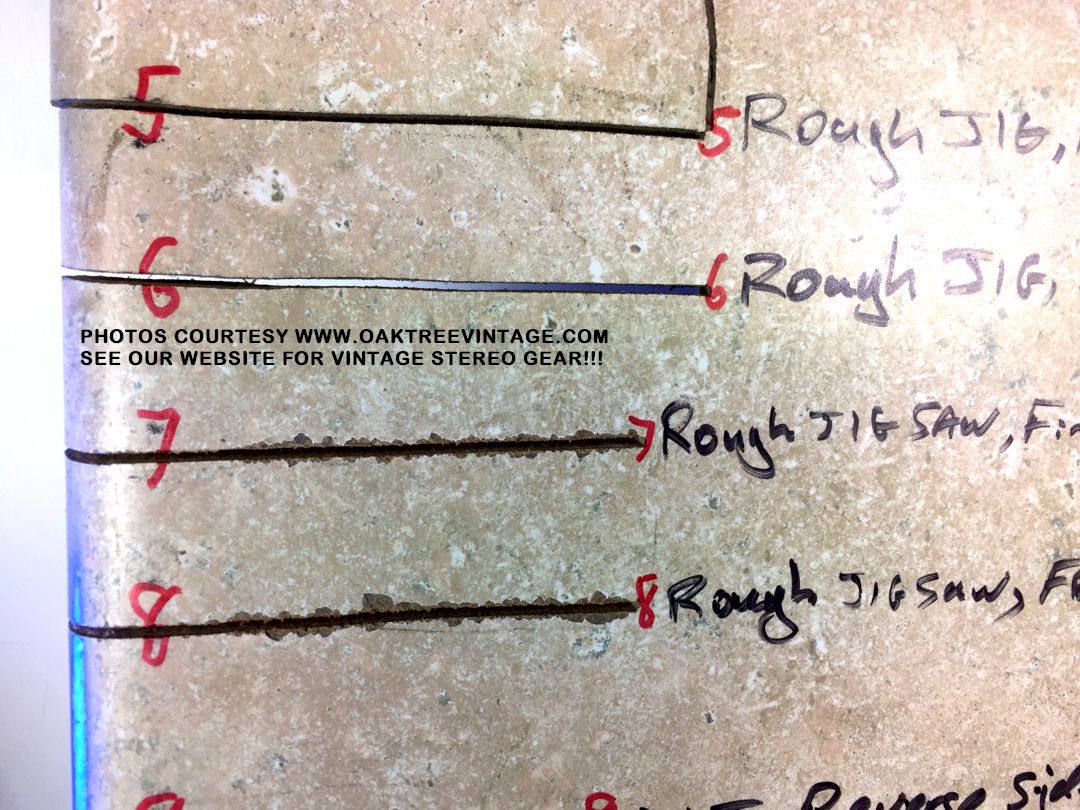 5 5 Rough JIG,
6 6 Rough JIG,
PHOTOS COURTESY WWW.OAKTREEVINTAGE.COM
SEE OUR WEBSITE FOR VINTAGE STEREO GEAR!!!
7 7 Rough JIG SAW, Fin
8 8 Rough JIG SAW,
Reverse Sid